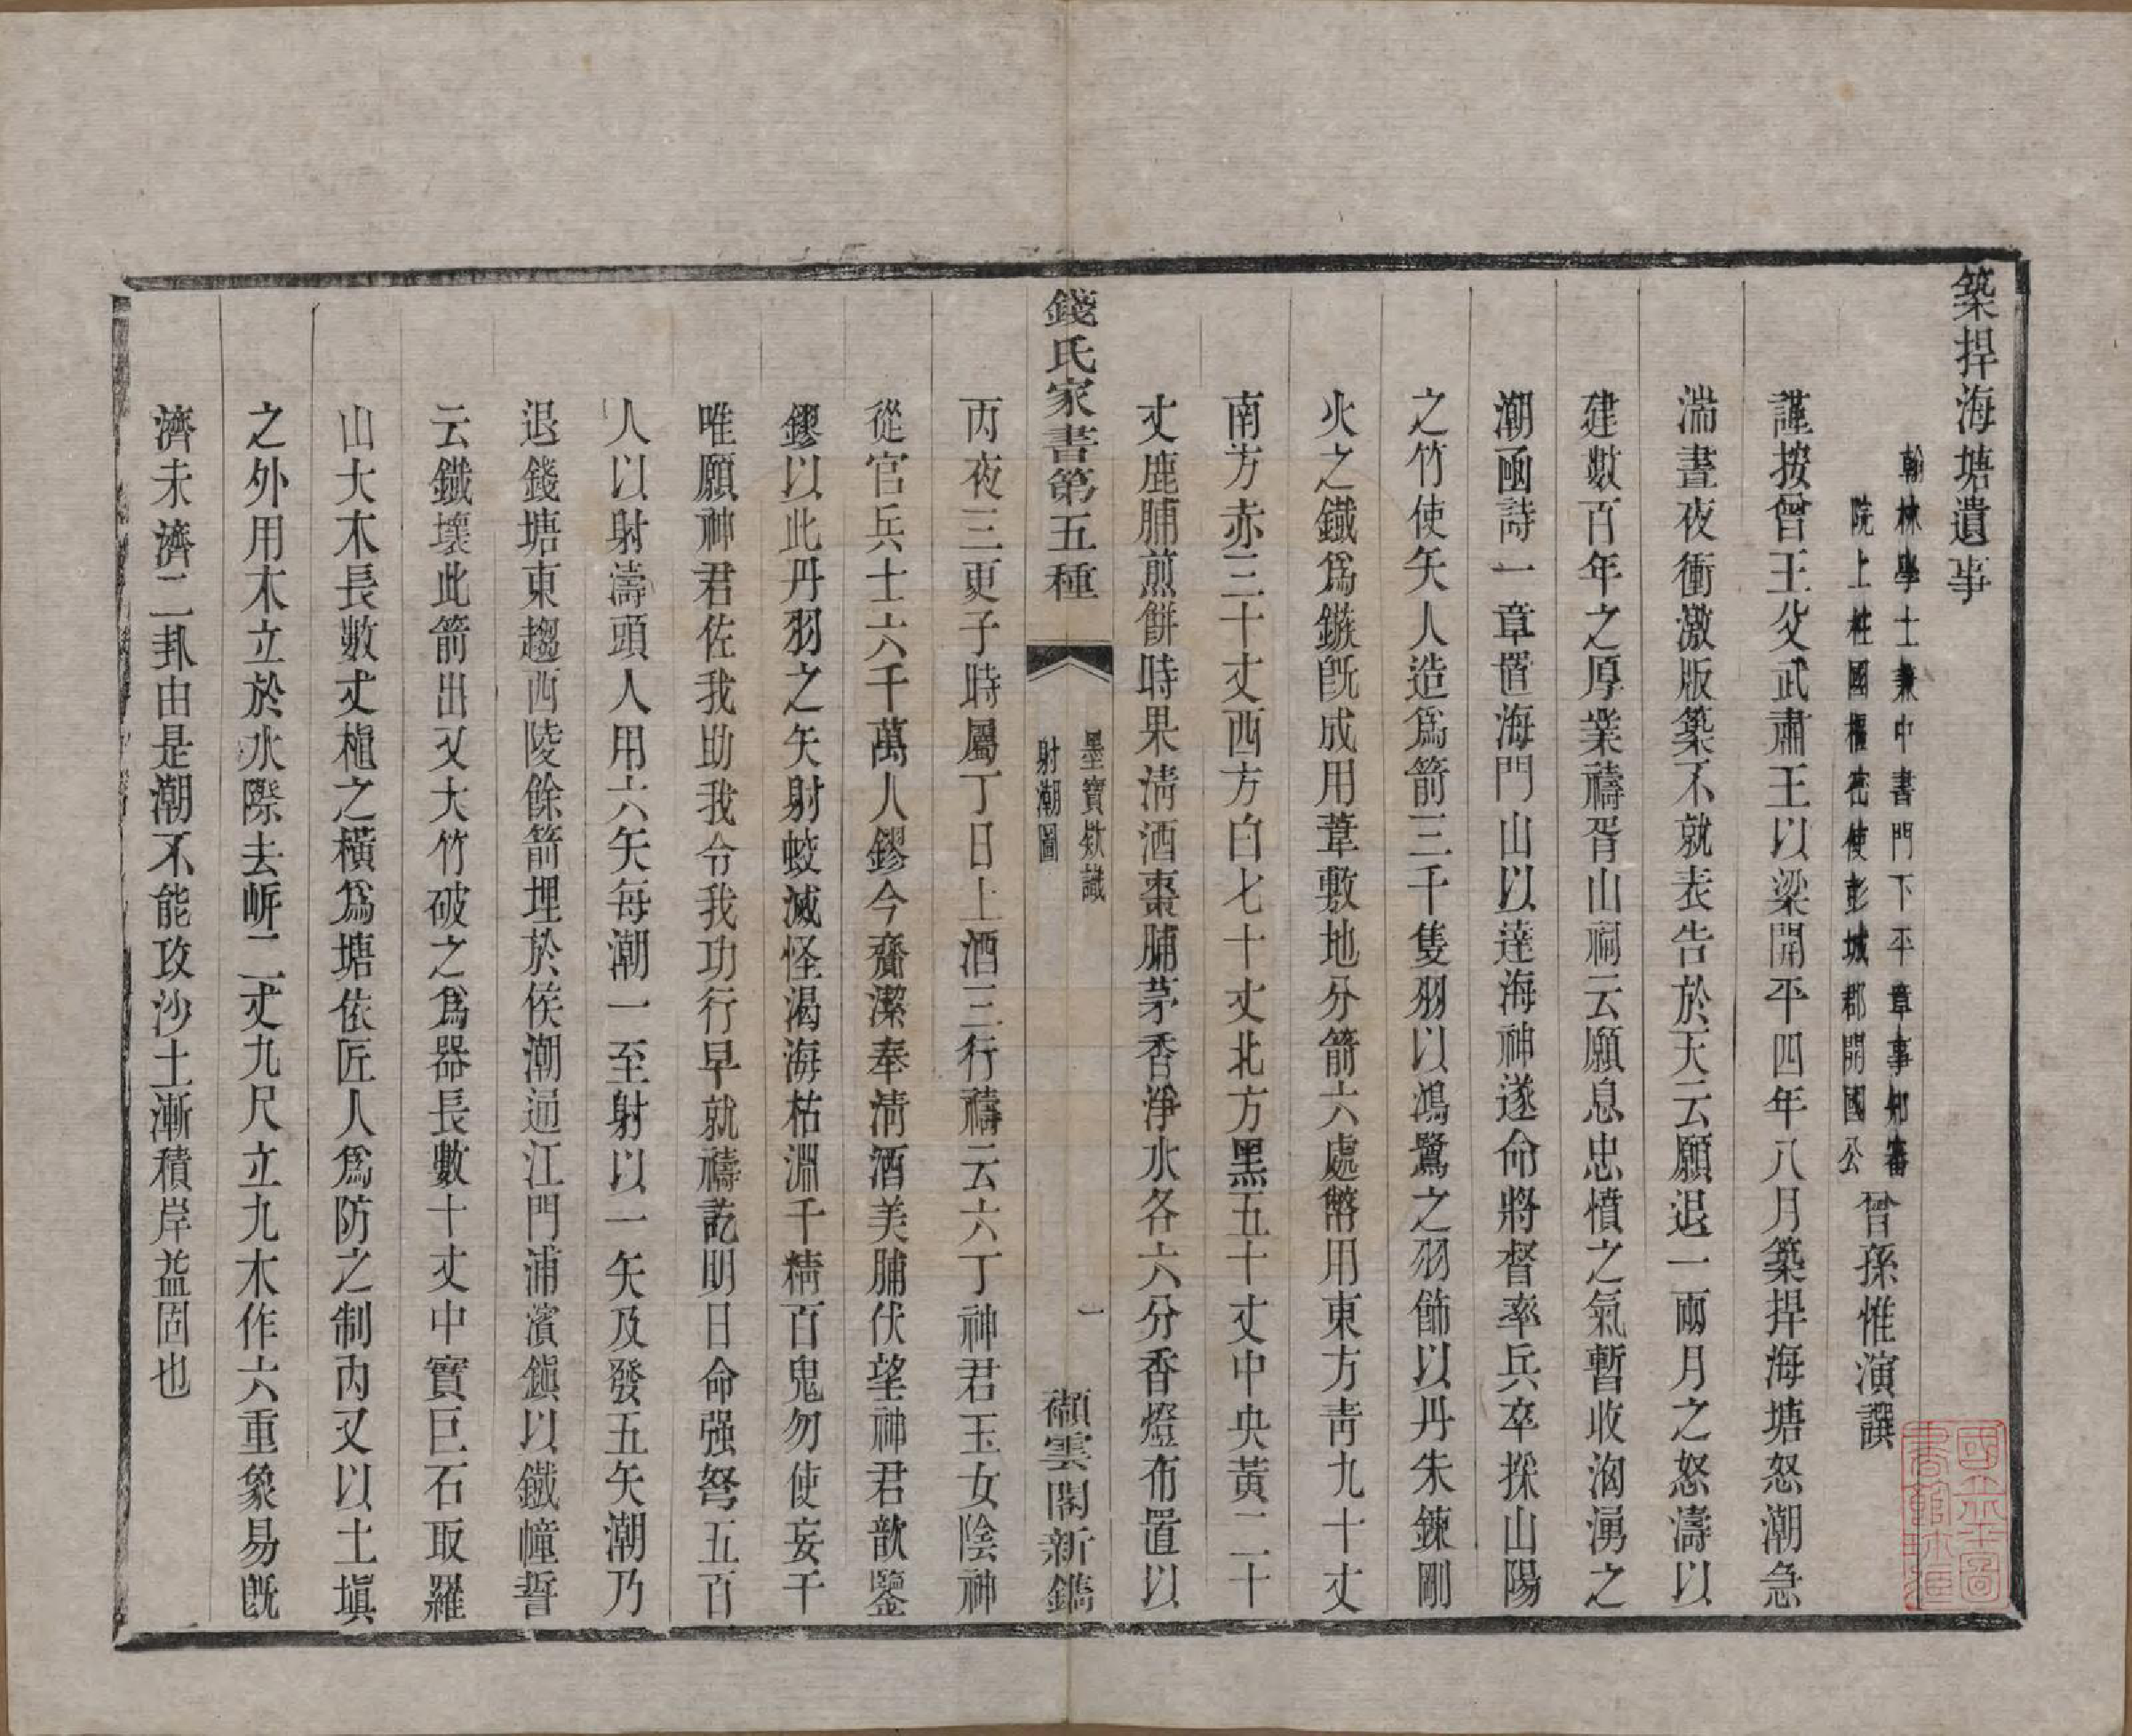 築捍海塘遺事
翰林學士兼中書門下平章事知審
院上柱國樞密使彭城郡開國公
曾孫惟演譔
謹按曾王父武肅王以梁開平四年八月築捍海塘怒潮急
湍晝夜衝激版築不就表告於天云願退一兩月之怒濤以
建數百年之厚業禱胥山祠云願息忠憤之氣暫收洶湧之
潮函詩一章置海門山以達海神遂命將督率兵卒採山陽
之竹使矢人造爲箭三千隻羽以鴻鷺之羽飾以丹朱鍊剛
火之鐵爲鏃旣成用葦敷地分箭六處幣用東方靑九十丈
南方赤三十丈西方白七十丈北方黑五十丈中央黃二十
丈鹿脯煎餠時果淸酒棗脯茅香淨水各六分香燈布置以
錢氏家書第五種
墨寶欵識
射潮圖
一
纈雲閣新鐫
丙夜三更子時屬丁日上酒三行禱云六丁神君玉女陰神
從官兵士六千萬人鏐今齋潔奉淸酒美脯伏望神君歆鑒
鏐以此丹羽之矢射蛟滅怪渴海枯淵千精百鬼勿使妄干
唯願神君佐我助我令我功行早就禱訖明日命强弩五百
人以射濤頭人用六矢每潮一至射以一矢及發五矢潮乃
退錢塘東趨西陵餘箭埋於侯潮通江門浦濱鎭以鐵幢誓
云鐵壞此箭出又大竹破之爲器長數十丈中實巨石取羅
山大木長數丈植之橫爲塘依匠人爲防之制內又以土塡
之外用木立於水際去岍二丈九尺立九木作六重象易旣
濟未濟二卦由是潮不能攻沙土漸積岸益固也